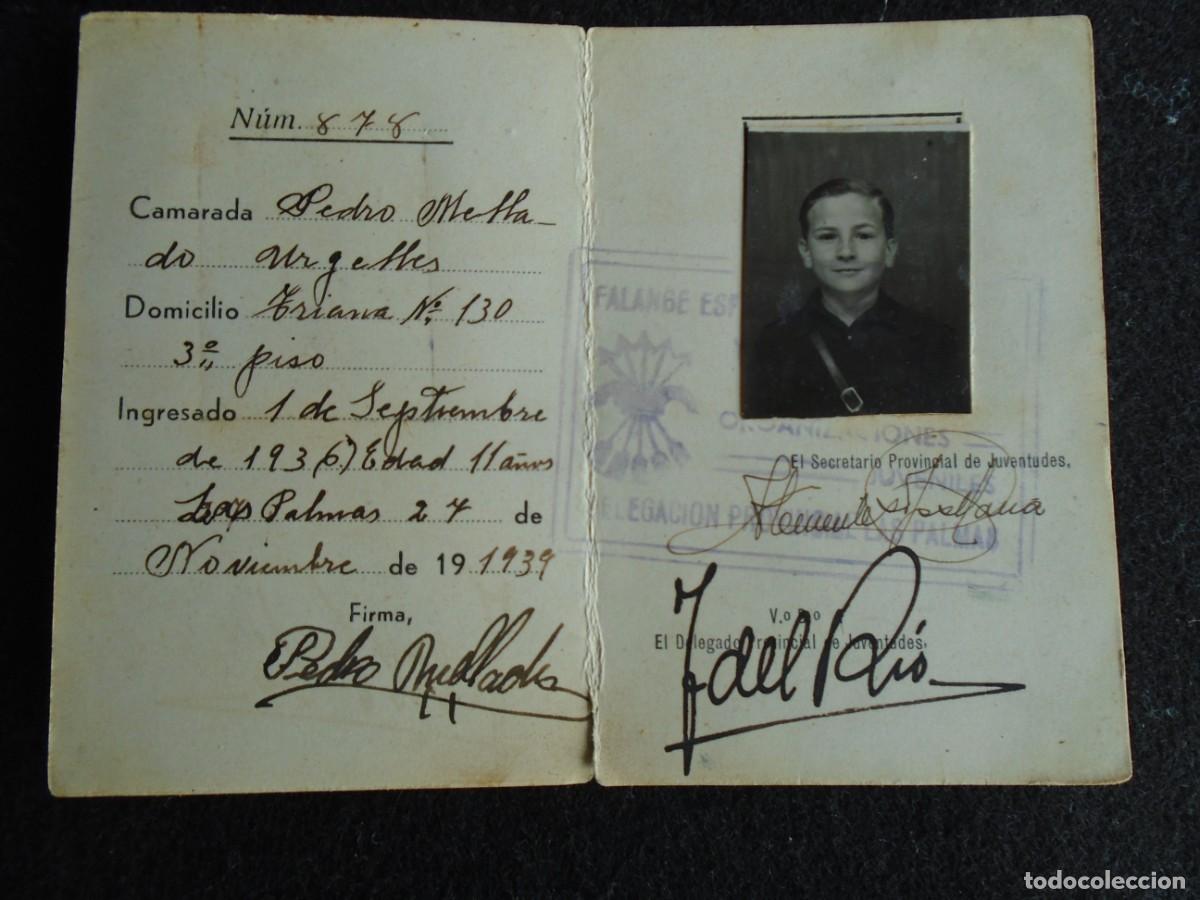 Núm. 878
Camarada Pedro Mella-
do Urgelles
Domicilio Triana Nº 130
3º piso
Ingresado 1 de Septiembre
de 193(6) Edad 11 años
Las Palmas 27 de
Noviembre de 19 1939
Firma,
Pedro Mellado
FALANGE ESP
ORGANIZACIONES
JUVENILES
DELEGACION PROVINCIAL LAS PALMAS
El Secretario Provincial de Juventudes,
V.º B.º
El Delegado Provincial de Juventudes,
J del Río
todocoleccion